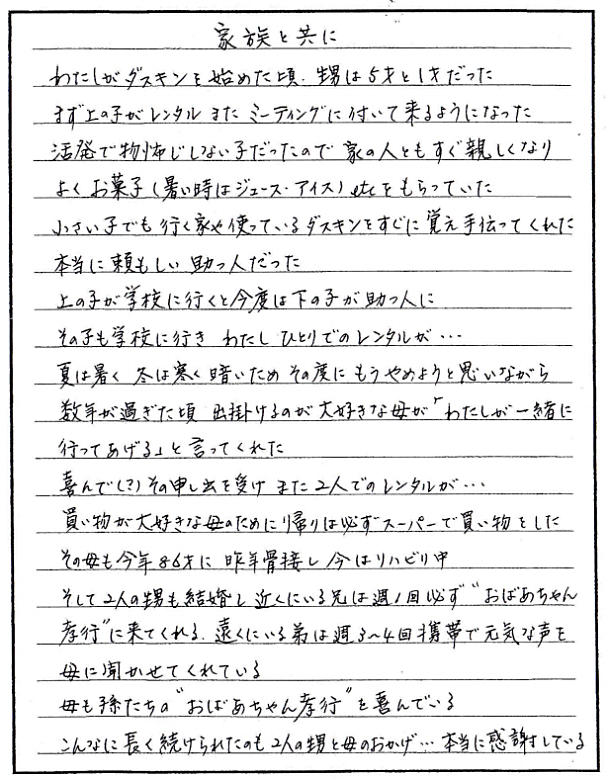 家族と共に
わたしがダスキンを始めた頃、甥は5才と1才だった
まず上の子がレンタル また ミーティングに付いて来るようになった
活発で物怖じしない子だったので 家の人ともすぐ親しくなり
よく お菓子(暑い時はジュース・アイス)etcをもらっていた
小さい子でも 行く家や使っているダスキンをすぐに覚え手伝ってくれた
本当に頼もしい助っ人だった
上の子が学校に行くと今度は下の子が助っ人に
その子も学校に行き わたしひとりでのレンタルが…
夏は暑く 冬は寒く暗いため その度に もうやめようと思いながら
数年が過ぎた頃 出掛けるのが大好きな母が「わたしが一緒に
行ってあげる」と言ってくれた
喜んで(?)その申し出を受け また2人でのレンタルが…
買い物が大好きな母のために帰りは必ずスーパーで買い物をした
その母も今年86才に 昨年骨接し 今はリハビリ中
そして2人の甥も結婚し 近くにいる兄は週1回必ず“おばあちゃん
孝行”に来てくれる、遠くにいる弟は週3〜4回携帯で元気な声を
母に聞かせてくれている
母も孫たちの“おばあちゃん孝行”を喜んでいる
こんなに長く続けられたのも2人の甥と母のおかげ…本当に感謝している